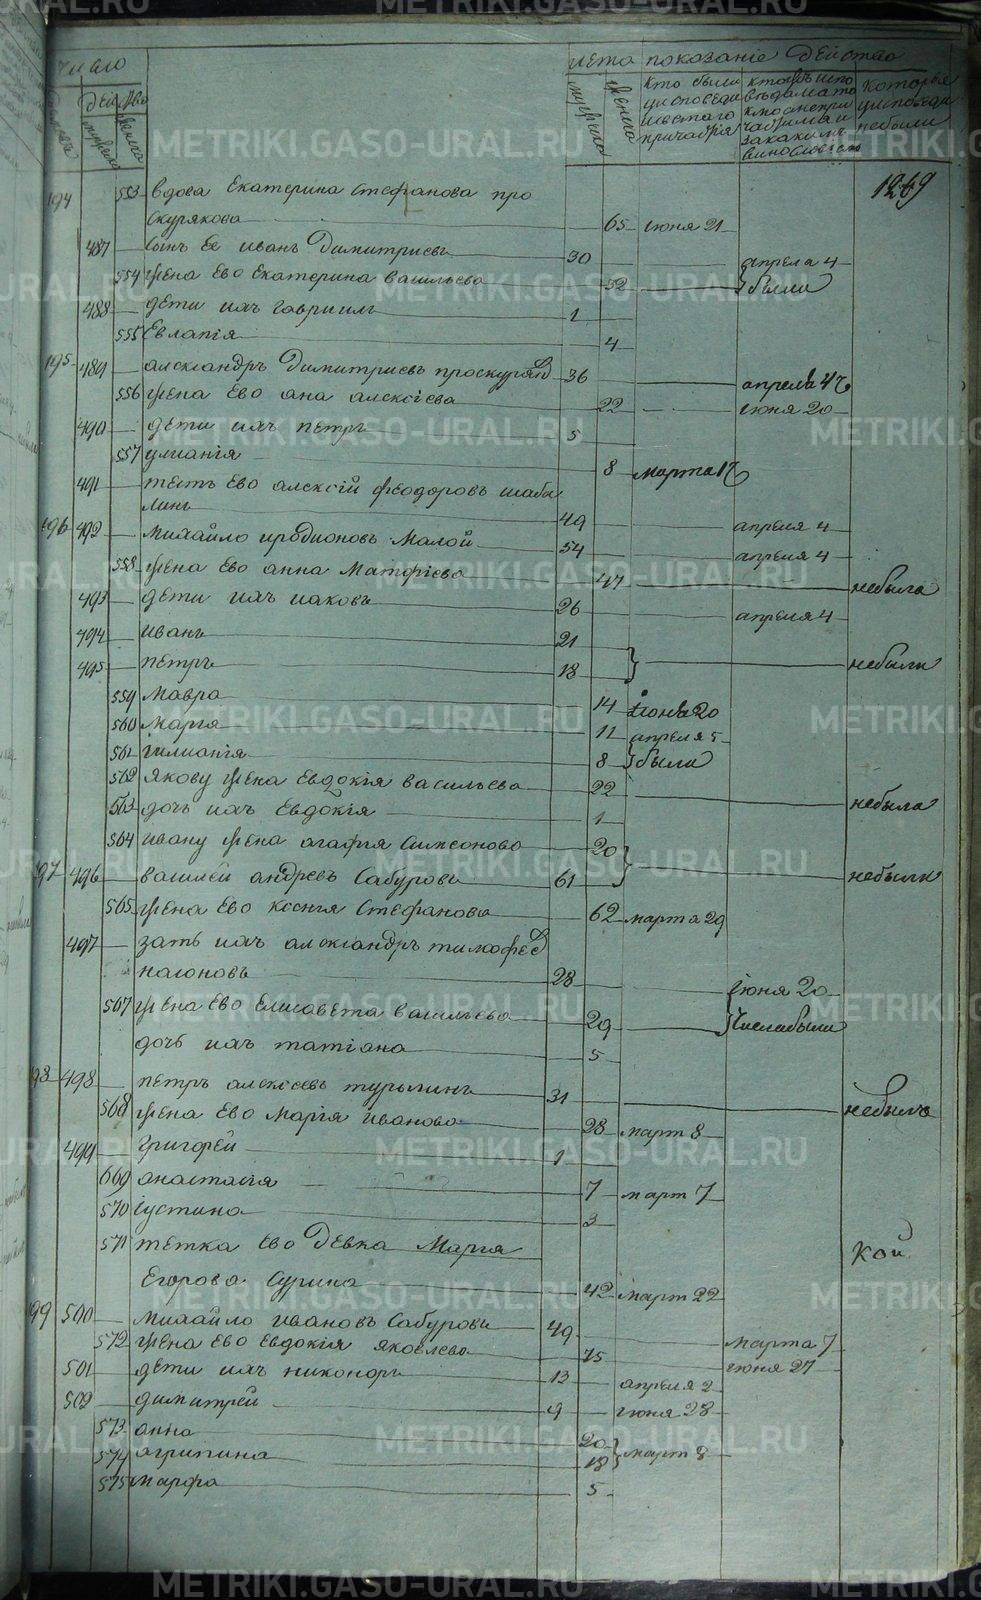 число лета показание действа
дворовъ
людей
мужеска
женска
мужеска
женска
кто были
у исповеди
и святаго
причастія
которые
у исповеди
небыли
1269
194 553 вдова Екатерина Стефанова про
скурякова 65 июня 21
487 сынъ Ее иванъ Димитриевъ 30 апреля 4
554 жена Ево Екатерина васильева 32 были
488 дети ихъ гавриилъ 1
555 Евлапія 4
195 489 александръ Димитриевъ проскуряков 36 апреля 4
556 жена Ево ана алексіева 22 июня 20
490 дети ихъ петръ 5
557 улианія 8 марта 17
491 тесть Ево алексій феодоровъ шаба
линъ 49 апреля 4
196 492 михайло иродионовъ Малой 54 апреля 4
558 жена Ево анна Матфіева 47 небыла
493 дети ихъ иаковъ 26 апреля 4
494 иванъ 21
495 петръ 18 небыли
559 Мавра 14 июня 20
560 Марія 11 апреля 5
561 иулианія 8 были
562 якову жена Евдокія васильева 22 небыла
563 дочь ихъ Евдокія 1
564 ивану жена агафія Симеонова 20
197 496 василей андреевъ Сабуровъ 61 небыли
565 жена Ево ксенія Стефанова 62 марта 29
497 зать ихъ александръ тимофеев
28 июня 20
567 жена Ево Елисавета васильева 29 были
дочь ихъ татіана 5
198 498 петръ алексеевъ 31 небылъ
568 жена Ево Марія иванова 28 март 8
499 григорей 1
669 анастасія 7 март 7
570 іустина 3
571 тетка Ево Девка Марія
Егорова Сурина 42 март 22
199 500 михайло ивановъ Сабуровъ 49 марта 7
572 жена Ево Евдокія яковлева 75 июня 27
501 дети ихъ никоноръ 13 апреля 2
502 димитрей 9 июня 28
573 анна 20
574 агрипина 18 март 8
575 марфа 5
METRIKI.GASO-URAL.RU